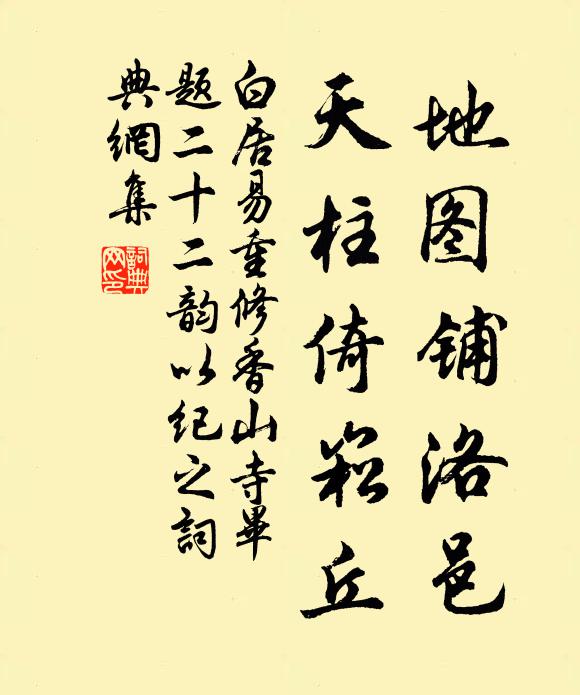 地图铺洛邑
天柱倚崧丘
白居易重修香山寺畢
题二十二韵以纪之詞
典網集
詞典网印